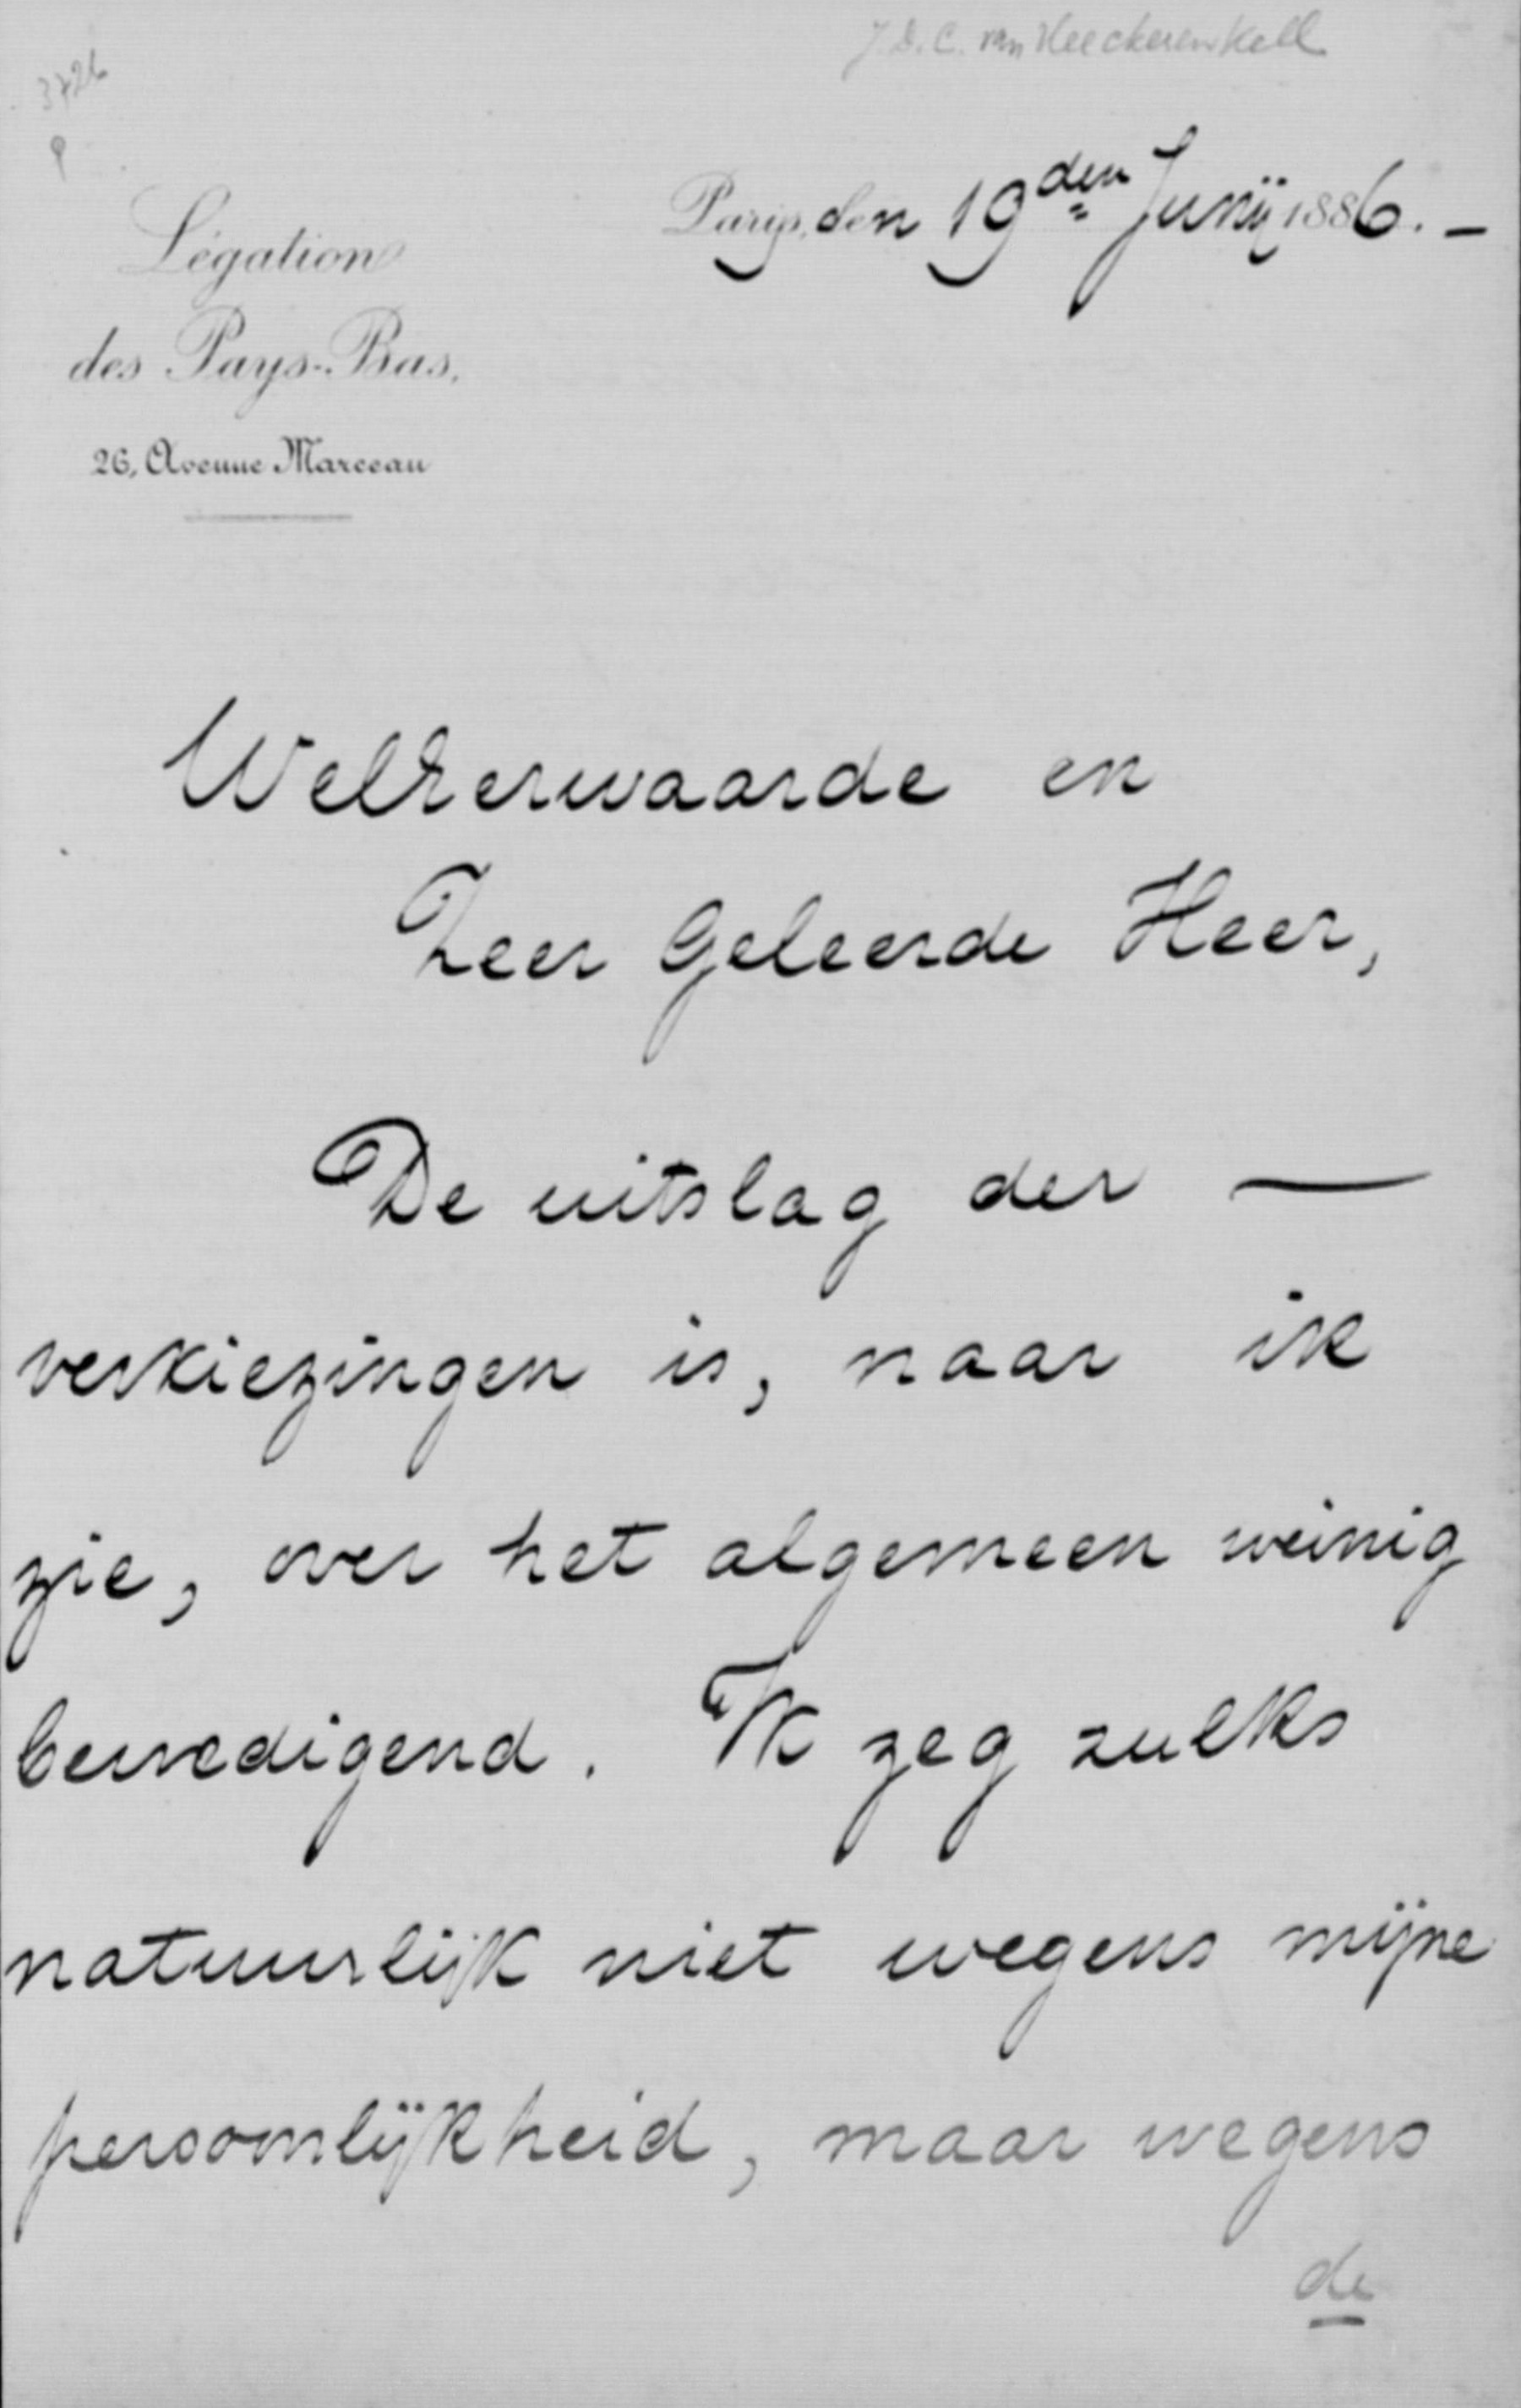 J.D.C. van Heeckeren Kell
3726
Parijs, den 19den Junij 1886. —
Légation
des Pays-Bas.
26, Avenue Marceau
WelEerwaarde en
Zeer Geleerde Heer,
De uitslag der —
verkiezingen is, naar ik
zie, over het algemeen weinig
bevredigend. Ik zeg zulks
natuurlijk niet wegens mijne
persoonlijkheid, maar wegens
de